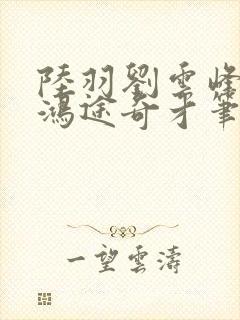 陸羽劉雲峰
鴻途奇才筆
一望雲濤